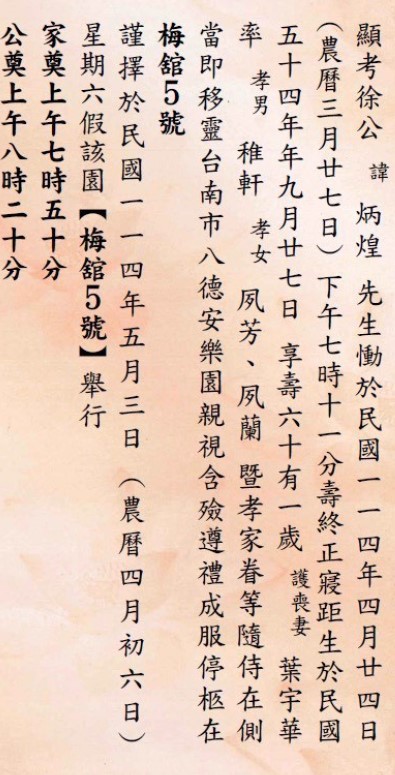 顯考徐公 諱 炳煌 先生慟於民國一一四年四月廿四日
（農曆三月廿七日）下午七時十一分壽終正寢距生於民國
五十四年年九月廿七日 享壽六十有一歲 護喪妻 葉宇華
率 孝男 稚軒 孝女 夙芳、夙蘭 暨孝家眷等隨侍在側
當即移靈台南市八德安樂園親視含殮遵禮成服停柩在
梅舘5號
謹擇於民國一一四年五月三日（農曆四月初六日）
星期六假該園【梅舘5號】舉行
家奠上午七時五十分
公奠上午八時二十分